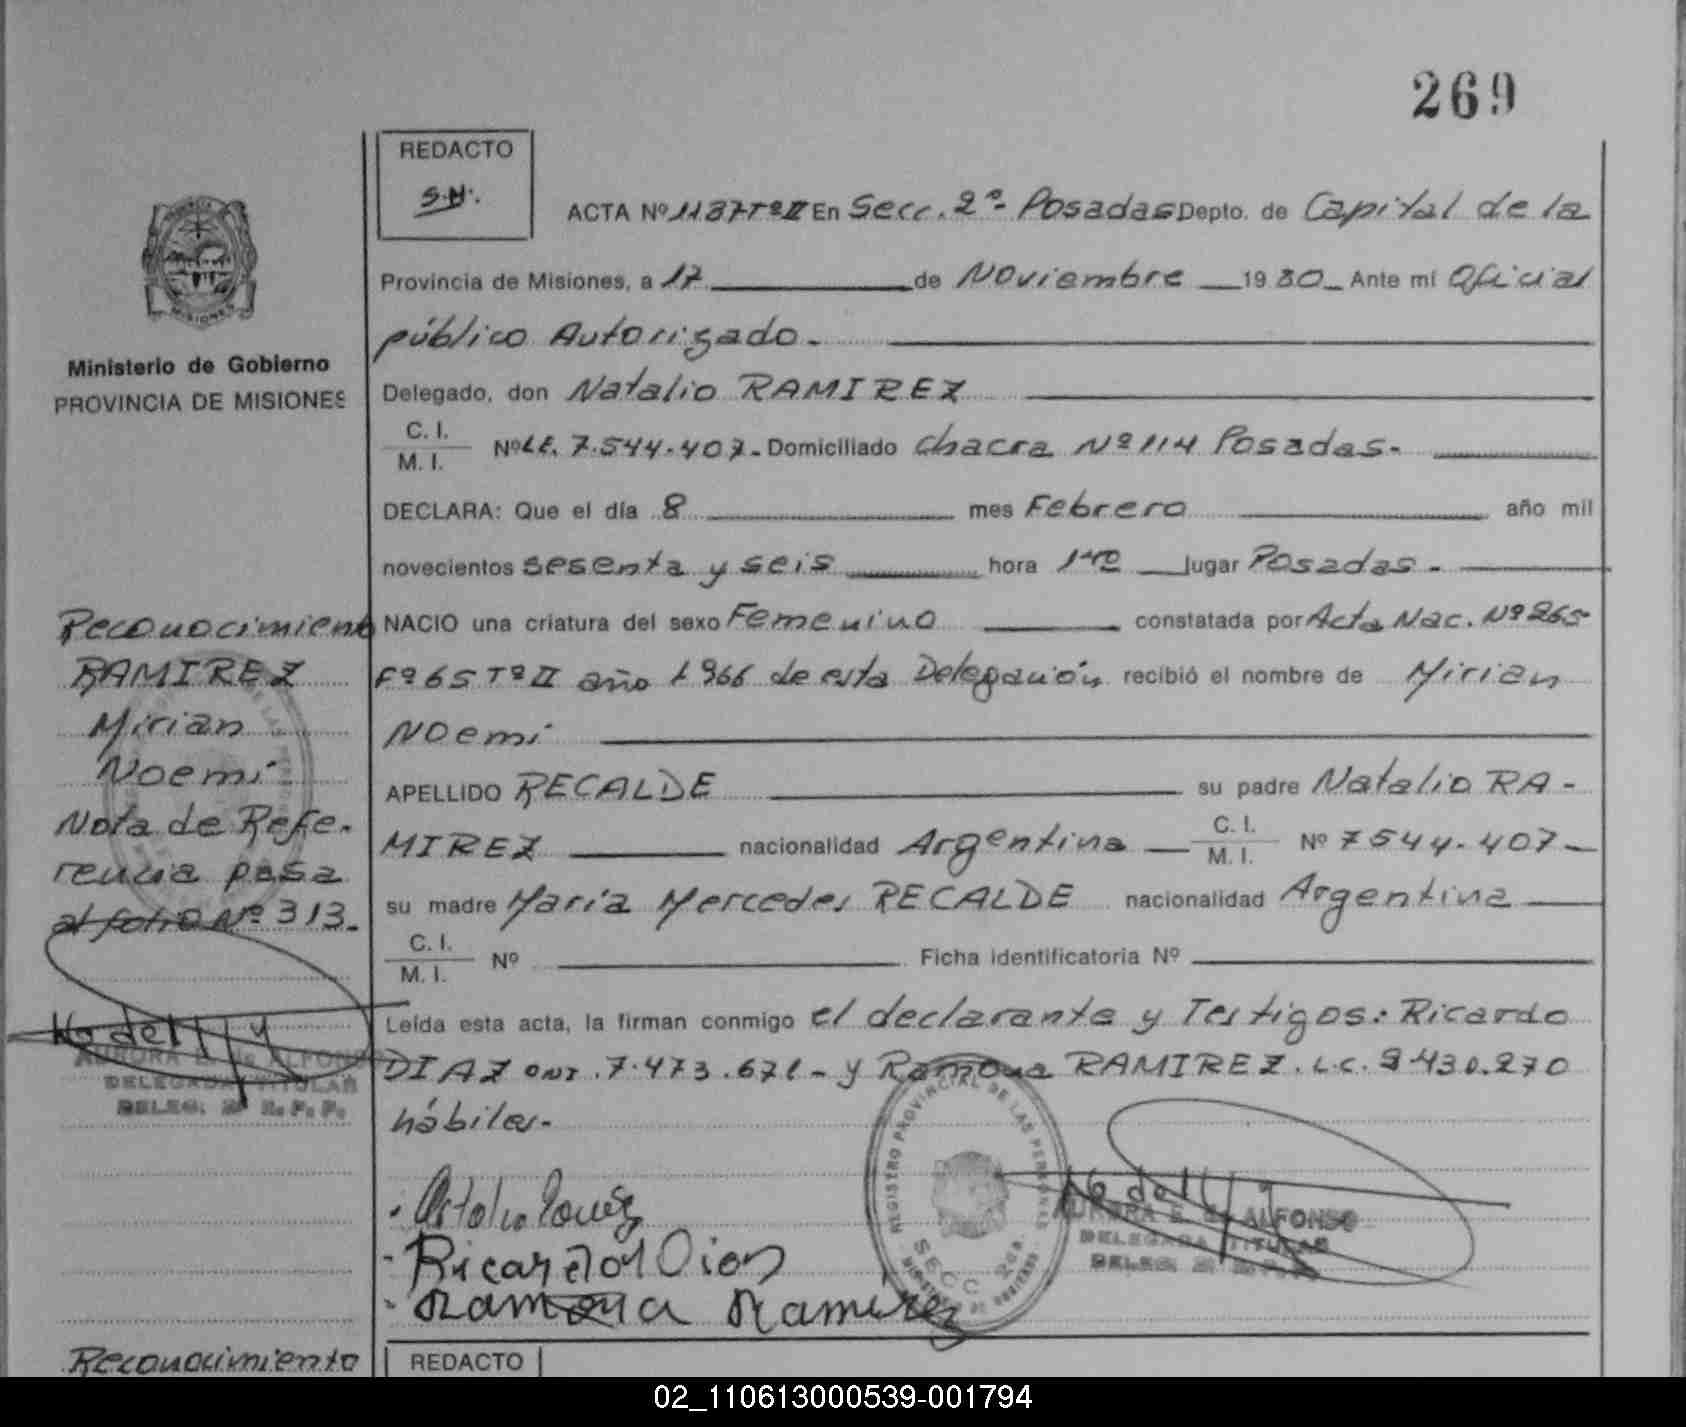 269
REDACTO
S.H.
ACTA Nº 1187 Tº II En Secc. 2ª - Posadas Depto. de Capital de la
Provincia de Misiones, a 17 de Noviembre 1980 Ante mí Oficial
público Autorizado.
Delegado, don Natalio RAMIREZ
C. I.
M. I.
Nº L.E. 7.544.407 - Domiciliado Chacra Nº 114 Posadas.
DECLARA: Que el día 8 mes Febrero año mil
novecientos sesenta y seis hora lugar Posadas.
NACIO una criatura del sexo Femenino constatada por Acta Nac. Nº 265
Fº 65 Tº II año 1966 de esta Delegación recibió el nombre de Mirian
Noemi
APELLIDO RECALDE su padre Natalio RA-
MIREZ nacionalidad Argentina C. I. M. I. Nº 7544.407
su madre María Mercedes RECALDE nacionalidad Argentina
C. I.
M. I.
Nº Ficha identificatoria Nº
Leída esta acta, la firman conmigo el declarante y Testigos: Ricardo
DIAZ DNI. 7.473.671 - y Ramona RAMIREZ. L.C. 9.430.270
hábiles.
Ricardo Dias
Ramona Ramirez
REGISTRO PROVINCIAL DE LAS PERSONAS
SECC. 2da.
AURORA E. de ALFONSO
DELEGADA TITULAR
Ministerio de Gobierno
PROVINCIA DE MISIONES
Reconocimiento
RAMIREZ
Mirian
Noemi
Nota de Refe-
rencia pasa
al folio Nº 313.
AURORA E. de ALFONSO
DELEGADA TITULAR
DELEG. 2ª R. P. P.
Reconocimiento
REDACTO
02_110613000539-001794